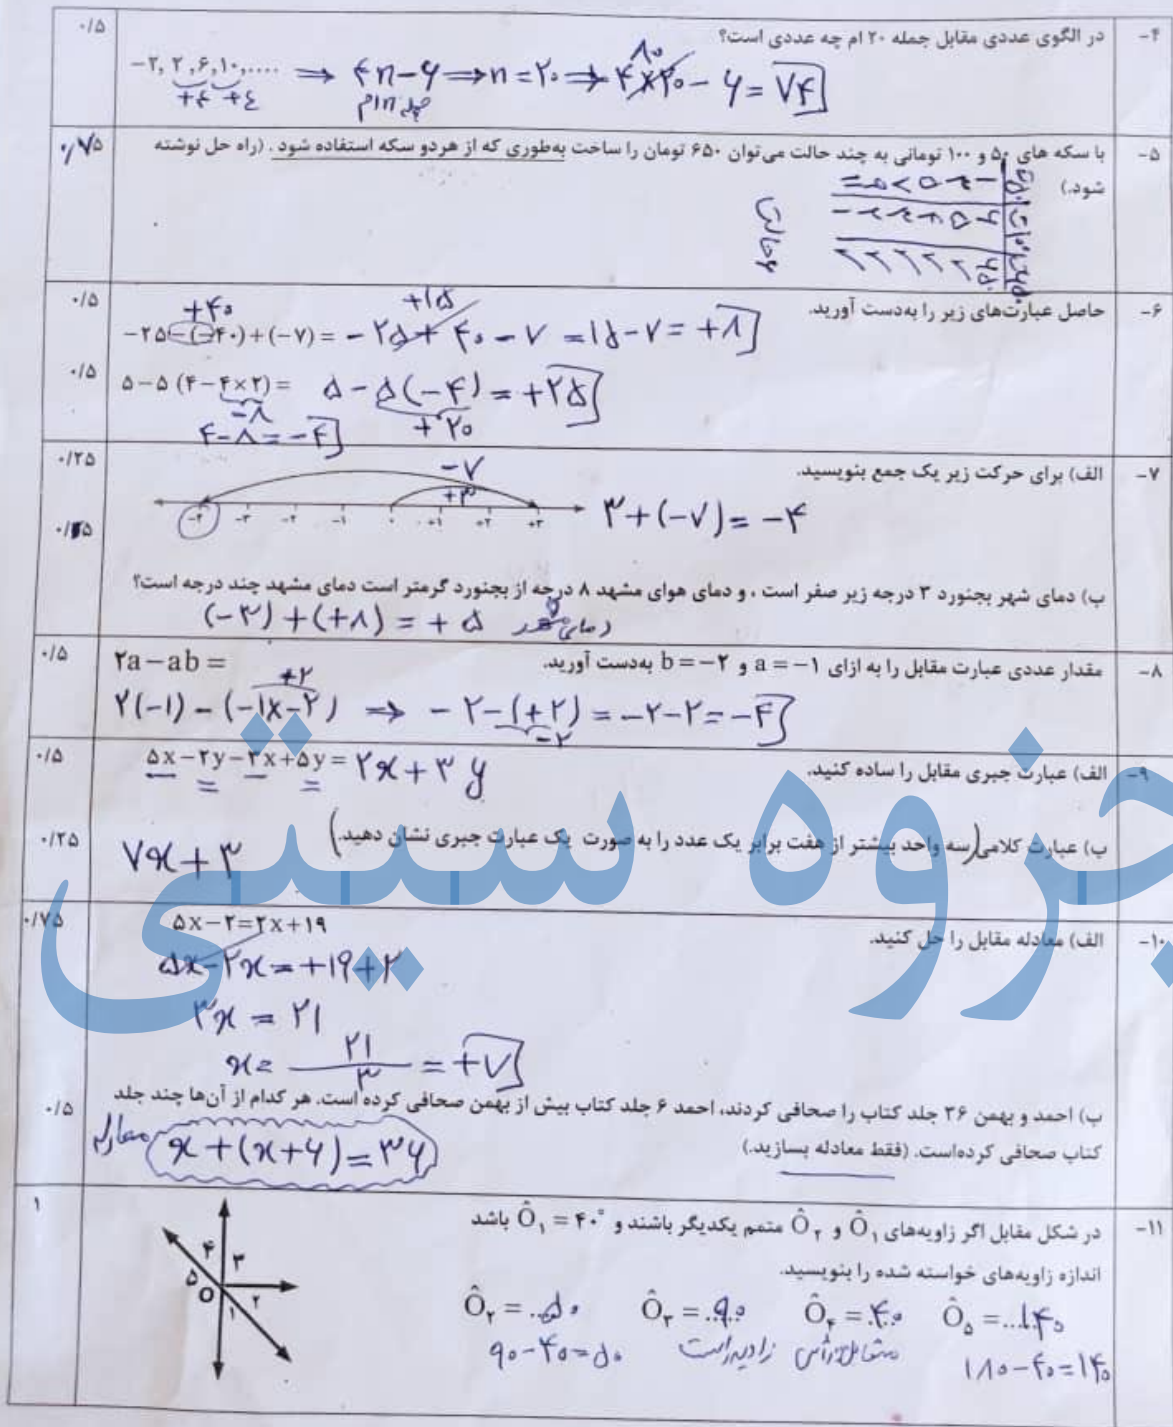 ۴- در الگوی عددی مقابل جمله ۲۰ ام چه عددی است؟ ۰/۵
-۲, ۲, ۶, ۱۰, .... ⇒ ۴n-۶ ⇒ n=۲۰ ⇒ ۴×۲۰-۶=۷۴
+۴ +۴ جمله nام ۸۰
۵- با سکه های ۵۰ و ۱۰۰ تومانی به چند حالت می‌توان ۶۵۰ تومان را ساخت به‌طوری که از هردو سکه استفاده شود. (راه حل نوشته ۰/۷۵
شود.)
۶ حالت
۶- حاصل عبارت‌های زیر را به‌دست آورید. ۰/۵
+۴۰ +۱۵
-۲۵-(-۴۰)+(-۷)= -۲۵+۴۰-۷=۱۵-۷=+۸
۵-۵(۴-۴×۲)= ۵-۵(-۴)=+۲۵ ۰/۵
-۸ +۲۰
۴-۸=-۴
۷- الف) برای حرکت زیر یک جمع بنویسید. ۰/۲۵
-۷
+۳
-۴ -۳ -۲ -۱ ۰ +۱ +۲ +۳
۳+(-۷)=-۴
ب) دمای شهر بجنورد ۳ درجه زیر صفر است ، و دمای هوای مشهد ۸ درجه از بجنورد گرمتر است دمای مشهد چند درجه است؟
(-۳)+(+۸)=+۵ دمای مشهد
۸- مقدار عددی عبارت مقابل را به ازای a=-۱ و b=-۲ به‌دست آورید. ۰/۵
۲a-ab=
+۲
۲(-۱)-(-۱×-۲) ⇒ -۲-(+۲)=-۲-۲=-۴
-۲
۹- الف) عبارت جبری مقابل را ساده کنید. ۰/۵
۵x-۲y-۳x+۵y=۲x+۳y
ب) عبارت کلامی(سه واحد بیشتر از هفت برابر یک عدد را به صورت یک عبارت جبری نشان دهید.) ۰/۲۵
۷x+۳
جزوه سیتی
۱۰- الف) معادله مقابل را حل کنید. ۰/۷۵
۵x-۲=۲x+۱۹
۵x-۲x=+۱۹+۲
۳x=۲۱
x=۲۱/۳=+۷
ب) احمد و بهمن ۳۶ جلد کتاب را صحافی کردند، احمد ۶ جلد کتاب بیش از بهمن صحافی کرده است. هر کدام از آن‌ها چند جلد ۰/۵
کتاب صحافی کرده‌است. (فقط معادله بسازید.)
x+(x+۶)=۳۶ معادله
۱۱- در شکل مقابل اگر زاویه‌های Ô۱ و Ô۲ متمم یکدیگر باشند و Ô۱=۴۰° باشد ۱
اندازه زاویه‌های خواسته شده را بنویسید.
Ô۲=..۵۰ Ô۳=..۹۰.. Ô۴=.۴۰ Ô۵=...۱۴۰
۹۰-۴۰=۵۰ زاویه راست متقابل به راس ۱۸۰-۴۰=۱۴۰
۴ ۳ ۵ O ۱ ۲